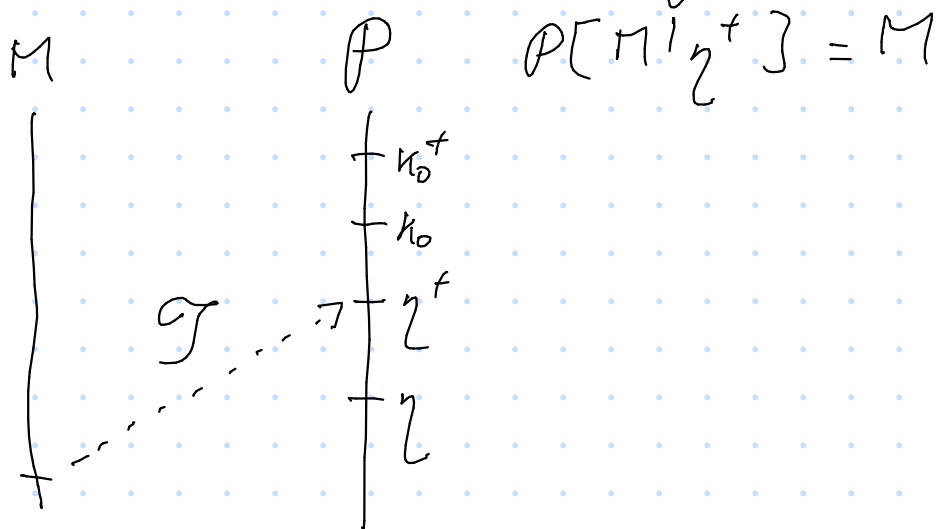 M 𝒫 𝒫[M|η⁺] = M
κ₀⁺
κ₀
𝒯 η⁺
η